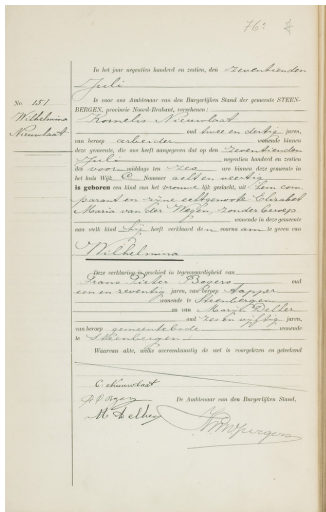 76
In het jaar negentien honderd en zestien, den zeventienden
Juli
is voor ons Ambtenaar van den Burgerlijken Stand der gemeente STEEN-
BERGEN, provincie Noord-Brabant, verschenen:
No. 151
Wilhelmina
Nieuwlaat
Kornelis Nieuwlaat
oud twee en dertig jaren,
van beroep arbeider wonende binnen
deze gemeente, die ons heeft aangegeven dat op den zeventienden
Juli negentien honderd en zestien
des voormiddags ten zes ure binnen deze gemeente in
het huis Wijk C Nommer acht en veertig
is geboren een kind van het vrouwelijk geslacht, uit hem com-
parant en zijne echtgenoote Elizabeth
Maria van der Wegen, zonder beroep
wonende in deze gemeente
aan welk kind hij heeft verklaard den voornaam te geven van
Wilhelmina
Deze verklaring is geschied in tegenwoordigheid van
Frans Pieter Bogers oud
een en zeventig jaren, van beroep tapper
wonende te Steenbergen
en van
oud zes en vijftig jaren,
van beroep gemeentebode wonende
te Steenbergen
Waarvan akte, welke overeenkomstig de wet is voorgelezen en geteekend
C Nieuwlaat
De Ambtenaar van den Burgerlijken Stand,